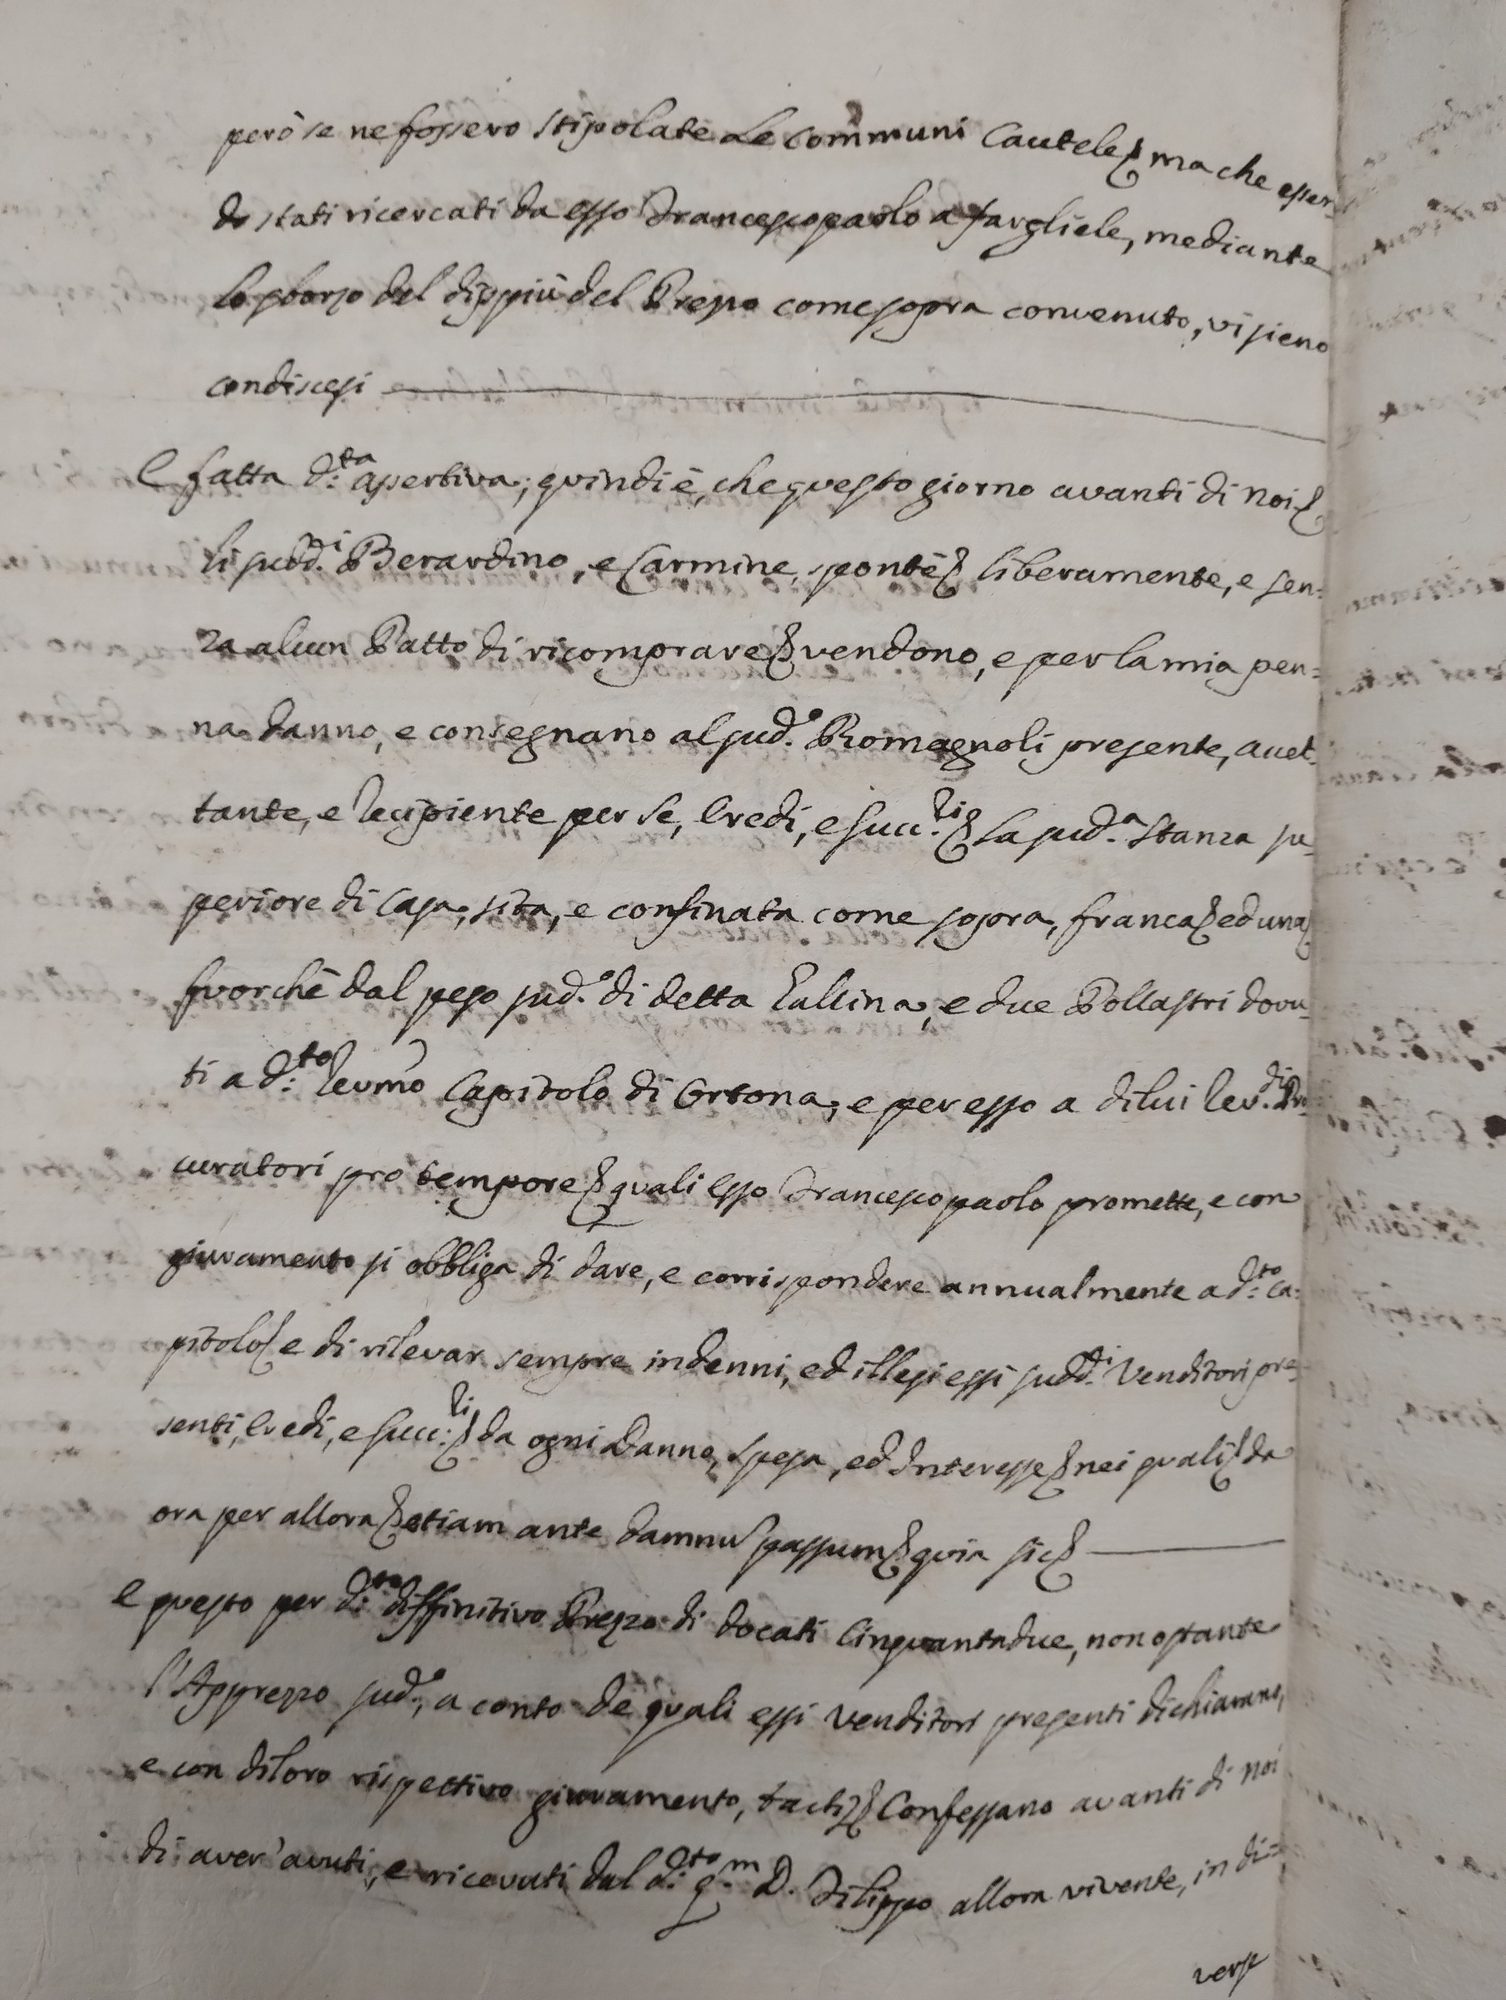 però se ne fossero stipolate le communi Cautele, ma che essen=
do stati ricercati da esso Francescopaolo a fargliele, mediante
lo sborzo del dippiù del Prezzo come sopra convenuto, vi sieno
condiscesi
E fatta d:ta apertiva; quindi è, che questo giorno avanti di noi
li sudd.i Berardino, e Carmine, spontè liberamente, e sen=
za alcun Patto di ricomprare vendono, e per la mia pen=
na danno, e consegnano al sud.o Romagnoli presente, accet=
tante, e recipiente per se, Eredi, e Succ:ri la sud.a Stanza su=
periore di Casa, sita, e confinata come sopra, franca ed una
fuorchè dal peso sud.o di detta Gallina, e due Pollastri dovu=
ti a d:to Revmo Capitolo di Ortona; e per esso a di lui Rev.di Pro=
curatori pro tempore quali esso Francescopaolo promette, e con
giuramento si obbliga di dare, e corrispondere annualmente a d:to Ca=
pitolo e di rilevar sempre indenni, ed illesi essi sudd.i Venditori pre=
senti, Eredi, e Succ:ri da ogni Danno, spesa, ed Interesse nei quali da
ora per allora etiam ante damnu passum quia sic
E questo per d:to diffinitivo Prezzo di docati Cinquantadue, non ostante
l'Apprezzo sud.o, a conto de quali essi Venditori presenti dichiarano,
e con di loro rispettivo giuramento, tactis Confessano avanti di noi
di aver' avuti, e ricevuti dal d:to q:m D. Filippo allora vivente, in di=
verse